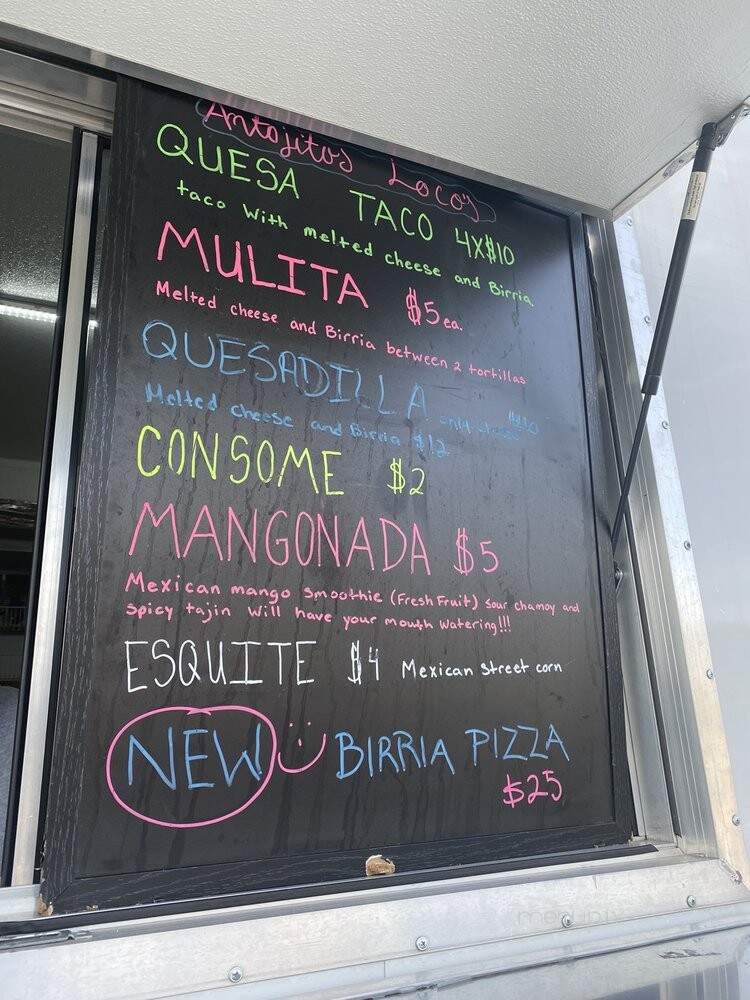 Antojitos Locos
QUESA TACO 4X$10
taco With melted cheese and Birria
MULITA $5 ea.
Melted cheese and Birria between 2 tortillas
QUESADILLA $10
Melted cheese and Birria $12
CONSOME $2
MANGONADA $5
Mexican mango smoothie (Fresh Fruit) sour chamoy and
spicy tajin will have your mouth watering!!!
ESQUITE $4 Mexican street corn
NEW BIRRIA PIZZA
$25